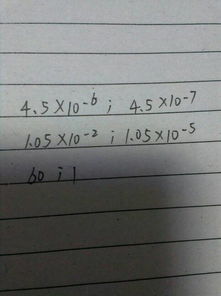 4.5×10⁻⁶ ; 4.5×10⁻⁷
1.05×10⁻² ; 1.05×10⁻⁵
60 ; 1